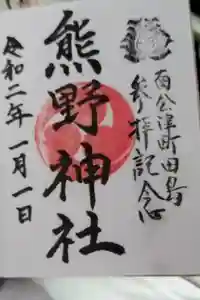 百公津町田島
参拝記念
熊野神社
令和二年一月一日